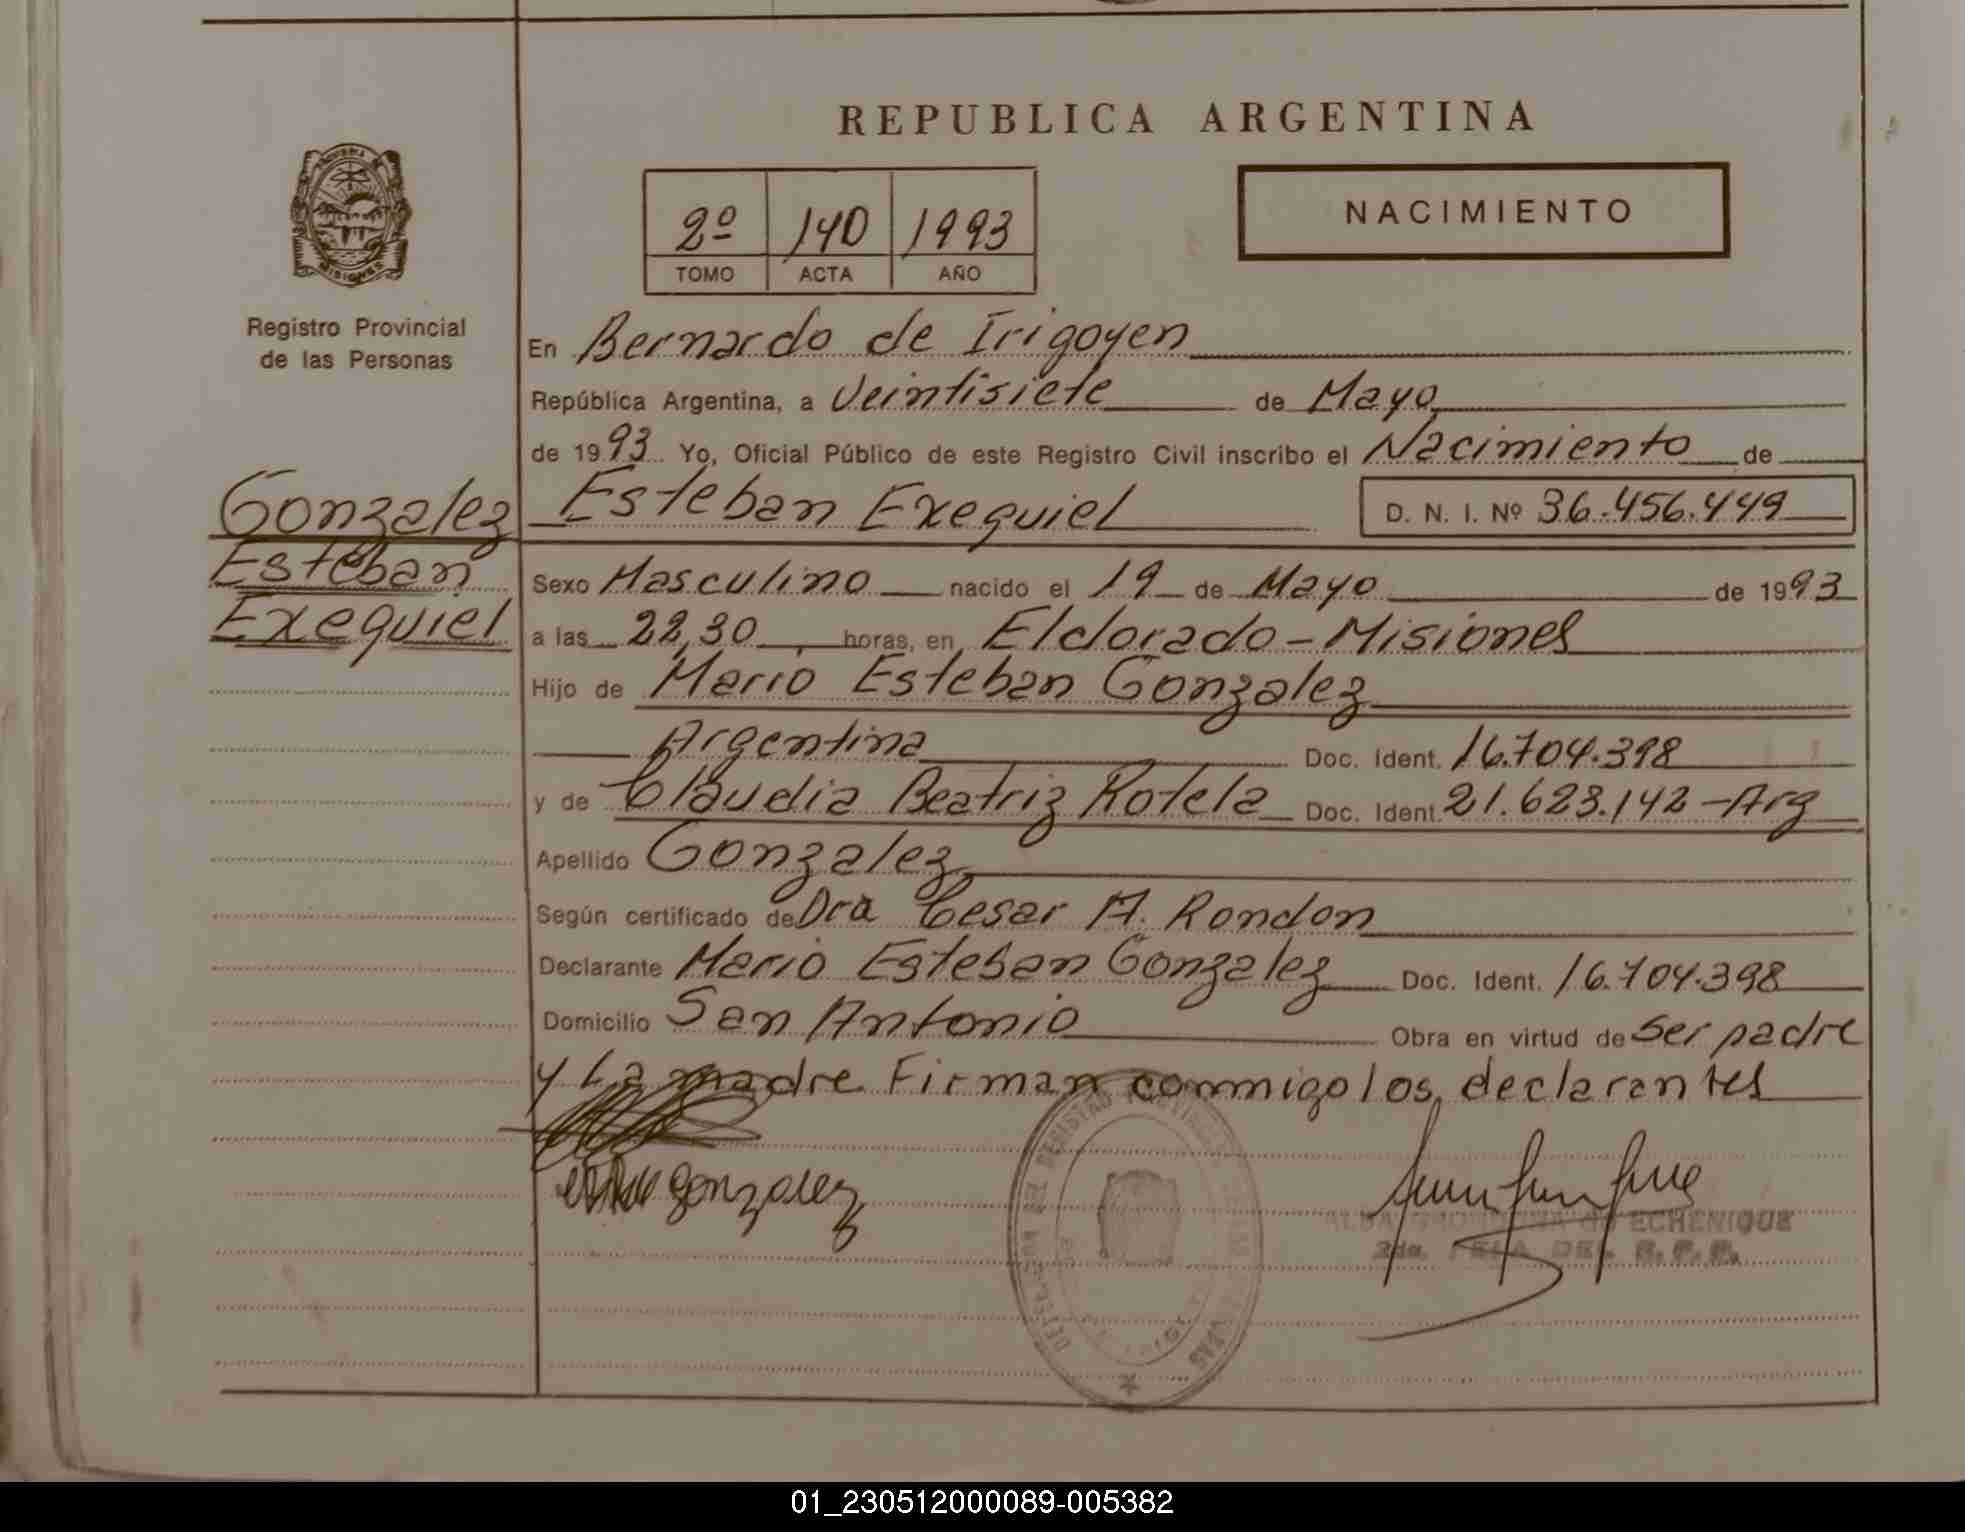 REPUBLICA ARGENTINA
2º 140 1993
TOMO ACTA AÑO
NACIMIENTO
MISIONES
Registro Provincial
de las Personas
Gonzalez
Esteban
Exequiel
En Bernardo de Irigoyen
República Argentina, a Veintisiete de Mayo
de 1993 Yo, Oficial Público de este Registro Civil inscribo el Nacimiento de
Esteban Exequiel D. N. I. Nº 36.456.449
Sexo Masculino nacido el 19 de Mayo de 1993
a las 22,30 horas, en Eldorado-Misiones
Hijo de Mario Esteban Gonzalez
Argentina Doc. Ident. 16.704.398
y de Claudia Beatriz Rotela Doc. Ident. 21.623.142-Arg
Apellido Gonzalez
Según certificado de Dra Cesar A. Rondon
Declarante Mario Esteban Gonzalez Doc. Ident. 16.704.398
Domicilio San Antonio Obra en virtud de Ser padre
y La madre Firman conmigo los declarantes
gonzalez
ECHENIQUE
01_230512000089-005382